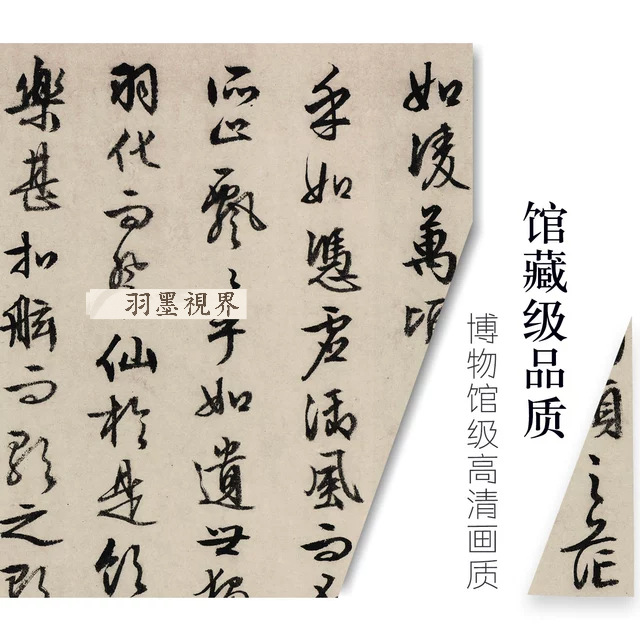 如淩萬頃
乎如憑虛御風而不
所止飄〻乎如遺世獨
羽化而登仙於是飲
樂甚扣舷而歌之歌
羽墨視界
馆藏级品质
博物馆级高清画质
頃之茫